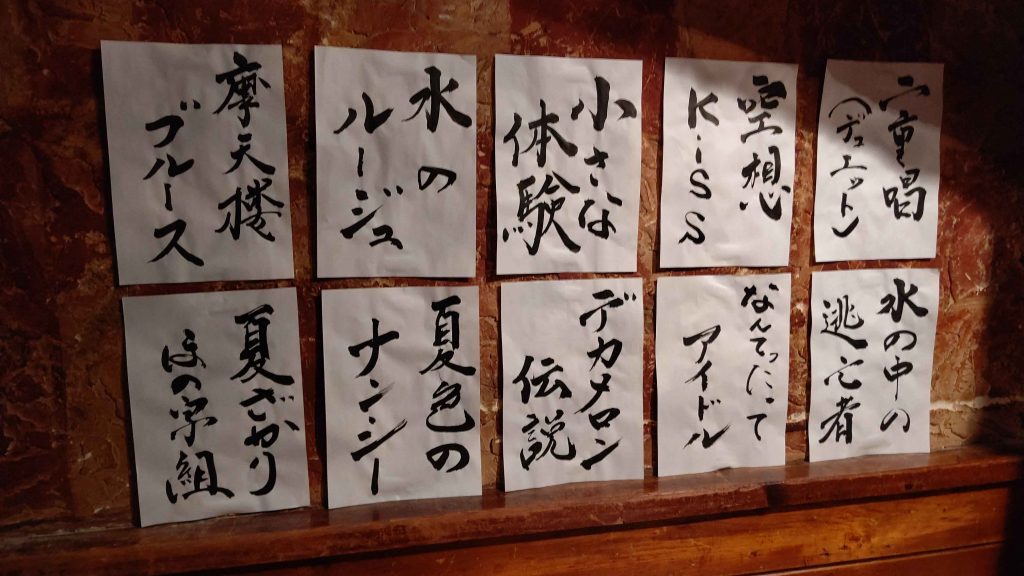 二重唱
(デュエット)
空想
KiSS
小さな
体験
水の
ルージュ
摩天楼
ブルース
水の中の
逃亡者
なんてったって
アイドル
デカメロン
伝説
夏色の
ナンシー
夏ざかり
ほの字組